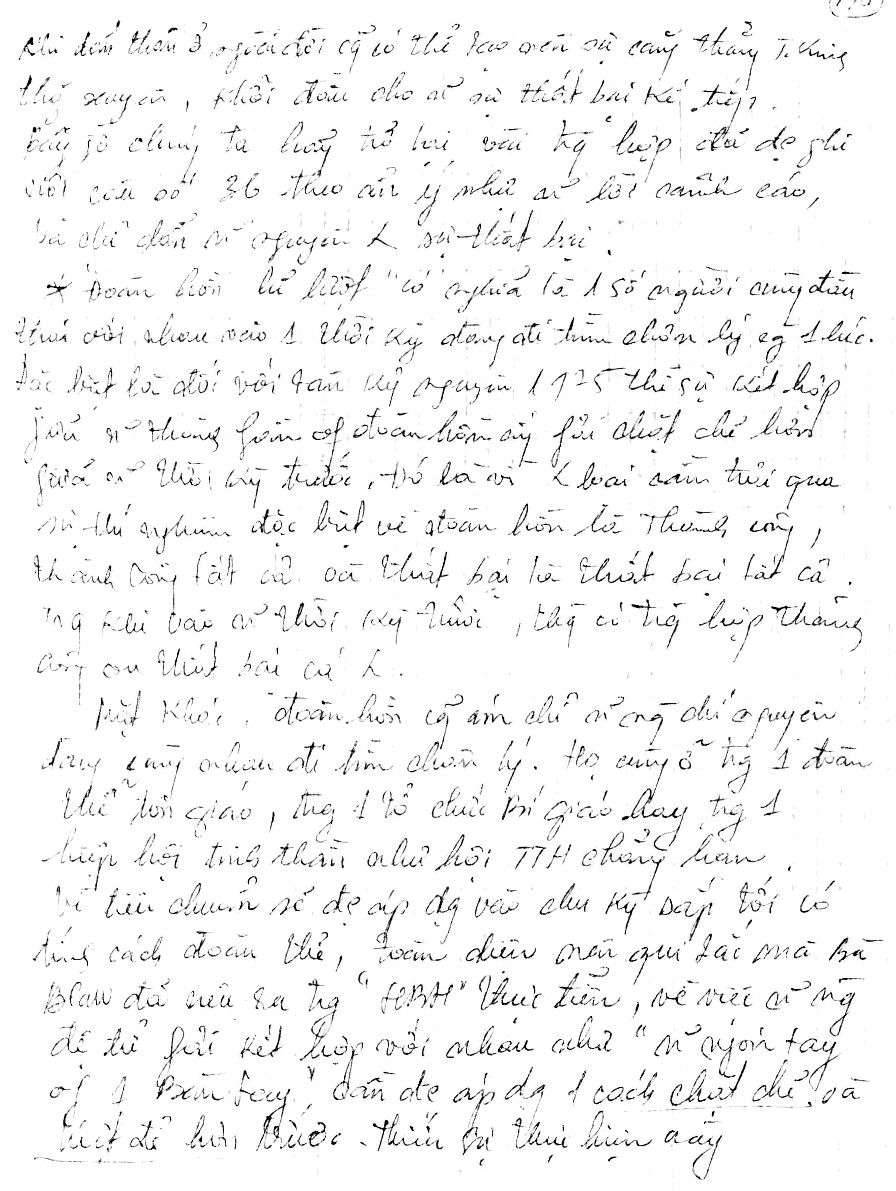 Khi đến thân ở người đời cg̃ có thể tạo nên sự căng thẳng T.
thg xuyên, khởi đầu cho n~ sự thất bại kế tiếp.
Bây giờ chúng ta hãy trở lại vài tg hợp đã đc ghi
với câu số 36 theo ẩn ý như n~ lời cảnh cáo,
và chỉ dẫn n~ nguyên L sự thất bại.
* Đoàn hồn "có nghĩa là 1 số người cùng đầu
thai với nhau vào 1 thời kỳ đang đi tìm chân lý cg 1 lúc.
Đặc biệt là đối với tân kỷ nguyên 1975 thì sự kết hợp
giữa n~ thành of đoàn hồn ấy chặt chẽ hơn
giữa n~ thời kỳ trước. Đó là vì L loại
sự thí nghiệm đặc biệt về đoàn hồn là Thành công,
thành công tất cả và thất bại là thất bại tất cả.
Trg khi vào n~ thời kỳ trước, thg có trg hợp thành
công or thất bại cá L.
Mặt khác, đoàn hồn cg̃ ám chỉ n~ ng chí nguyện
đang cùng nhau đi tìm chân lý. Họ cùng ở trg 1 đoàn
thể tôn giáo, trg 1 tổ chức Bí giáo hay trg 1
hiệp hội tinh thần như hội TTH chẳng hạn.
Vì tiêu chuẩn sẽ đc áp dg vào chu kỳ sắp tới có
tính cách đoàn thể, toàn diện nên qui tắc mà Bà
Blav đã nêu ra trg " thực tiễn, về việc n~ ng
đệ tử phải kết hợp với nhau như "n~ ngón tay
of 1 Bàn tay", cần đc áp dg 1 cách chặt chẽ và
triệt để hơn trước. Thiếu sự thực hiện ấy